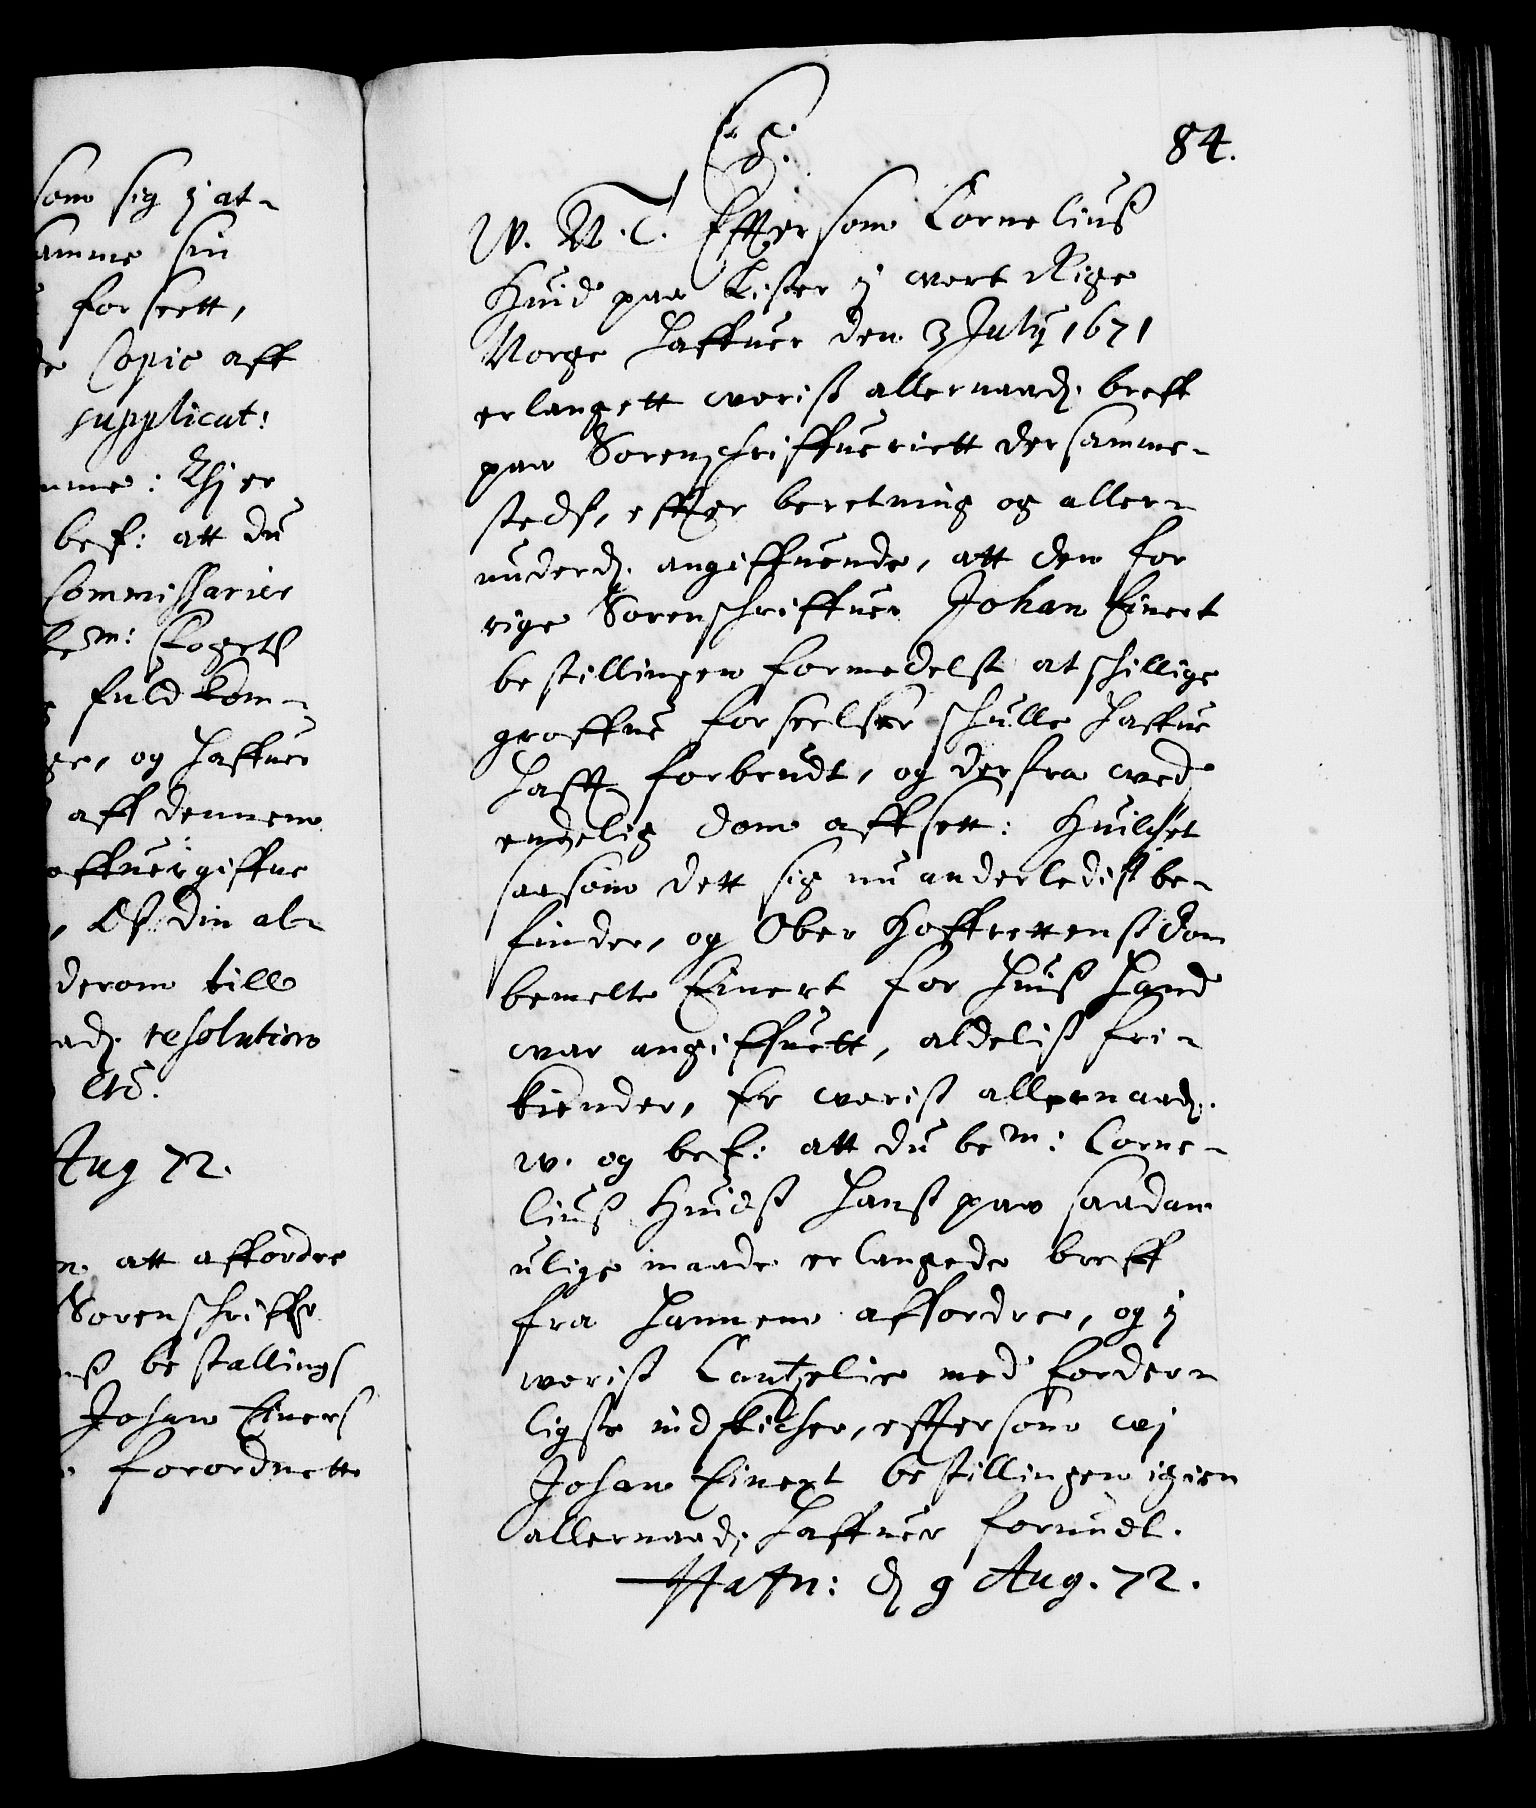 som sig y at-
amme sin
forseett,
de Copie aff
supplicat:
mme: Thj er
bef: att du
Commissarier
be^m: Fogets
fuldkom-
ge, og haffuer
aff dennem
offuergiffue
, Oß din al-
derom till
aad. resolution
etc.
Aug 72.
n. att affordre
Sorenschriffr
nß bestallings
Johan Einers
forordnette
C. 5.
84.
W. N. T. Efftersom Corneliuß
Huid paa Lister y wort Rige
Norge haffuer den 3 July 1671
erlangett woriß allernaad. breff
paa Sorenschriffueriett dersamme-
steds, effter beretning og aller-
underd. angiffuende, att den for
rige Sorenschriffuer Johan Einert
bestillingen formedelst atschillige
groffue forseelser schulle haffue
hafft forbrudt, og derfra wed
endelig dom affsett: Huilchet
saasom dett sig nu anderledist be-
finder, og Ober Hoffrettenß dom
bemelte Einert for huiß hand
war angiffuett, aldeliß fri-
kiender, Er woriß allernaad.
w. og bef: att du be^m: Corne-
liuß Huidß hanß paa saadan
ulige maade erlangede breff
fra hannem affordrer, og y
woriß Cantzelie med forder-
ligste indskicher, efftersom wj
Johan Einert bestillingen igien
allernaad. haffuer forundt.
Hafn: d. 9 Aug. 72.